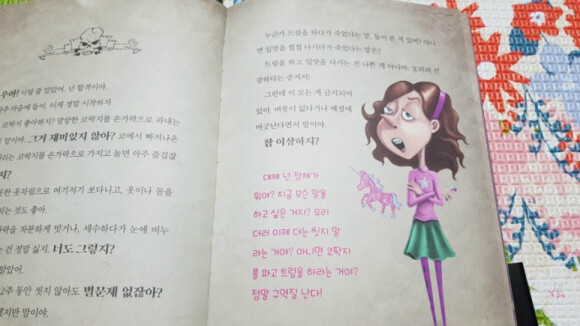 우려! 이럴 줄 알았어. 넌 합격이야.
아주 마음에 들어. 이제 정말 시작하자.
코딱지 좋아하지? 말랑한 코딱지를 손가락으로 파내는
말이야. 그거 재미있지 않아? 코에서 빠져나온
리는 코딱지를 손가락으로 가지고 놀면 아주 즐겁잖
지?
못한 옷차림으로 여기저기 쏘다니고, 옷이나 몸을
히는 것도 좋아.
카락을 차분하게 빗거나, 세수하다가 눈에 비누
는 건 정말 싫지. 너도 그렇지?
알았어.
2주 동안 씻지 않아도 별문제 없잖아?
겠지만 말이야.
누군가 트림을 하다가 죽었다는 말, 들어 본 적 있어? 아니
면 입맛을 쩝쩝 다시다가 죽었다는 말은?
트림을 하고 입맛을 다시는 건 나쁜 게 아니야. 오히려 건
강하다는 증거지!
그런데 이 모든 게 금지되어
있어. 버릇이 없다거나 예절에
어긋난다면서 말이야.
참 이상하지?
대체 넌 정체가
뭐야? 지금 무슨 말을
하고 싶은 거지? 우리
더러 이제 더는 씻지 말
라는 거야? 아니면 코딱지
를 파고 트림을 하라는 거야?
정말 구역질 난다!